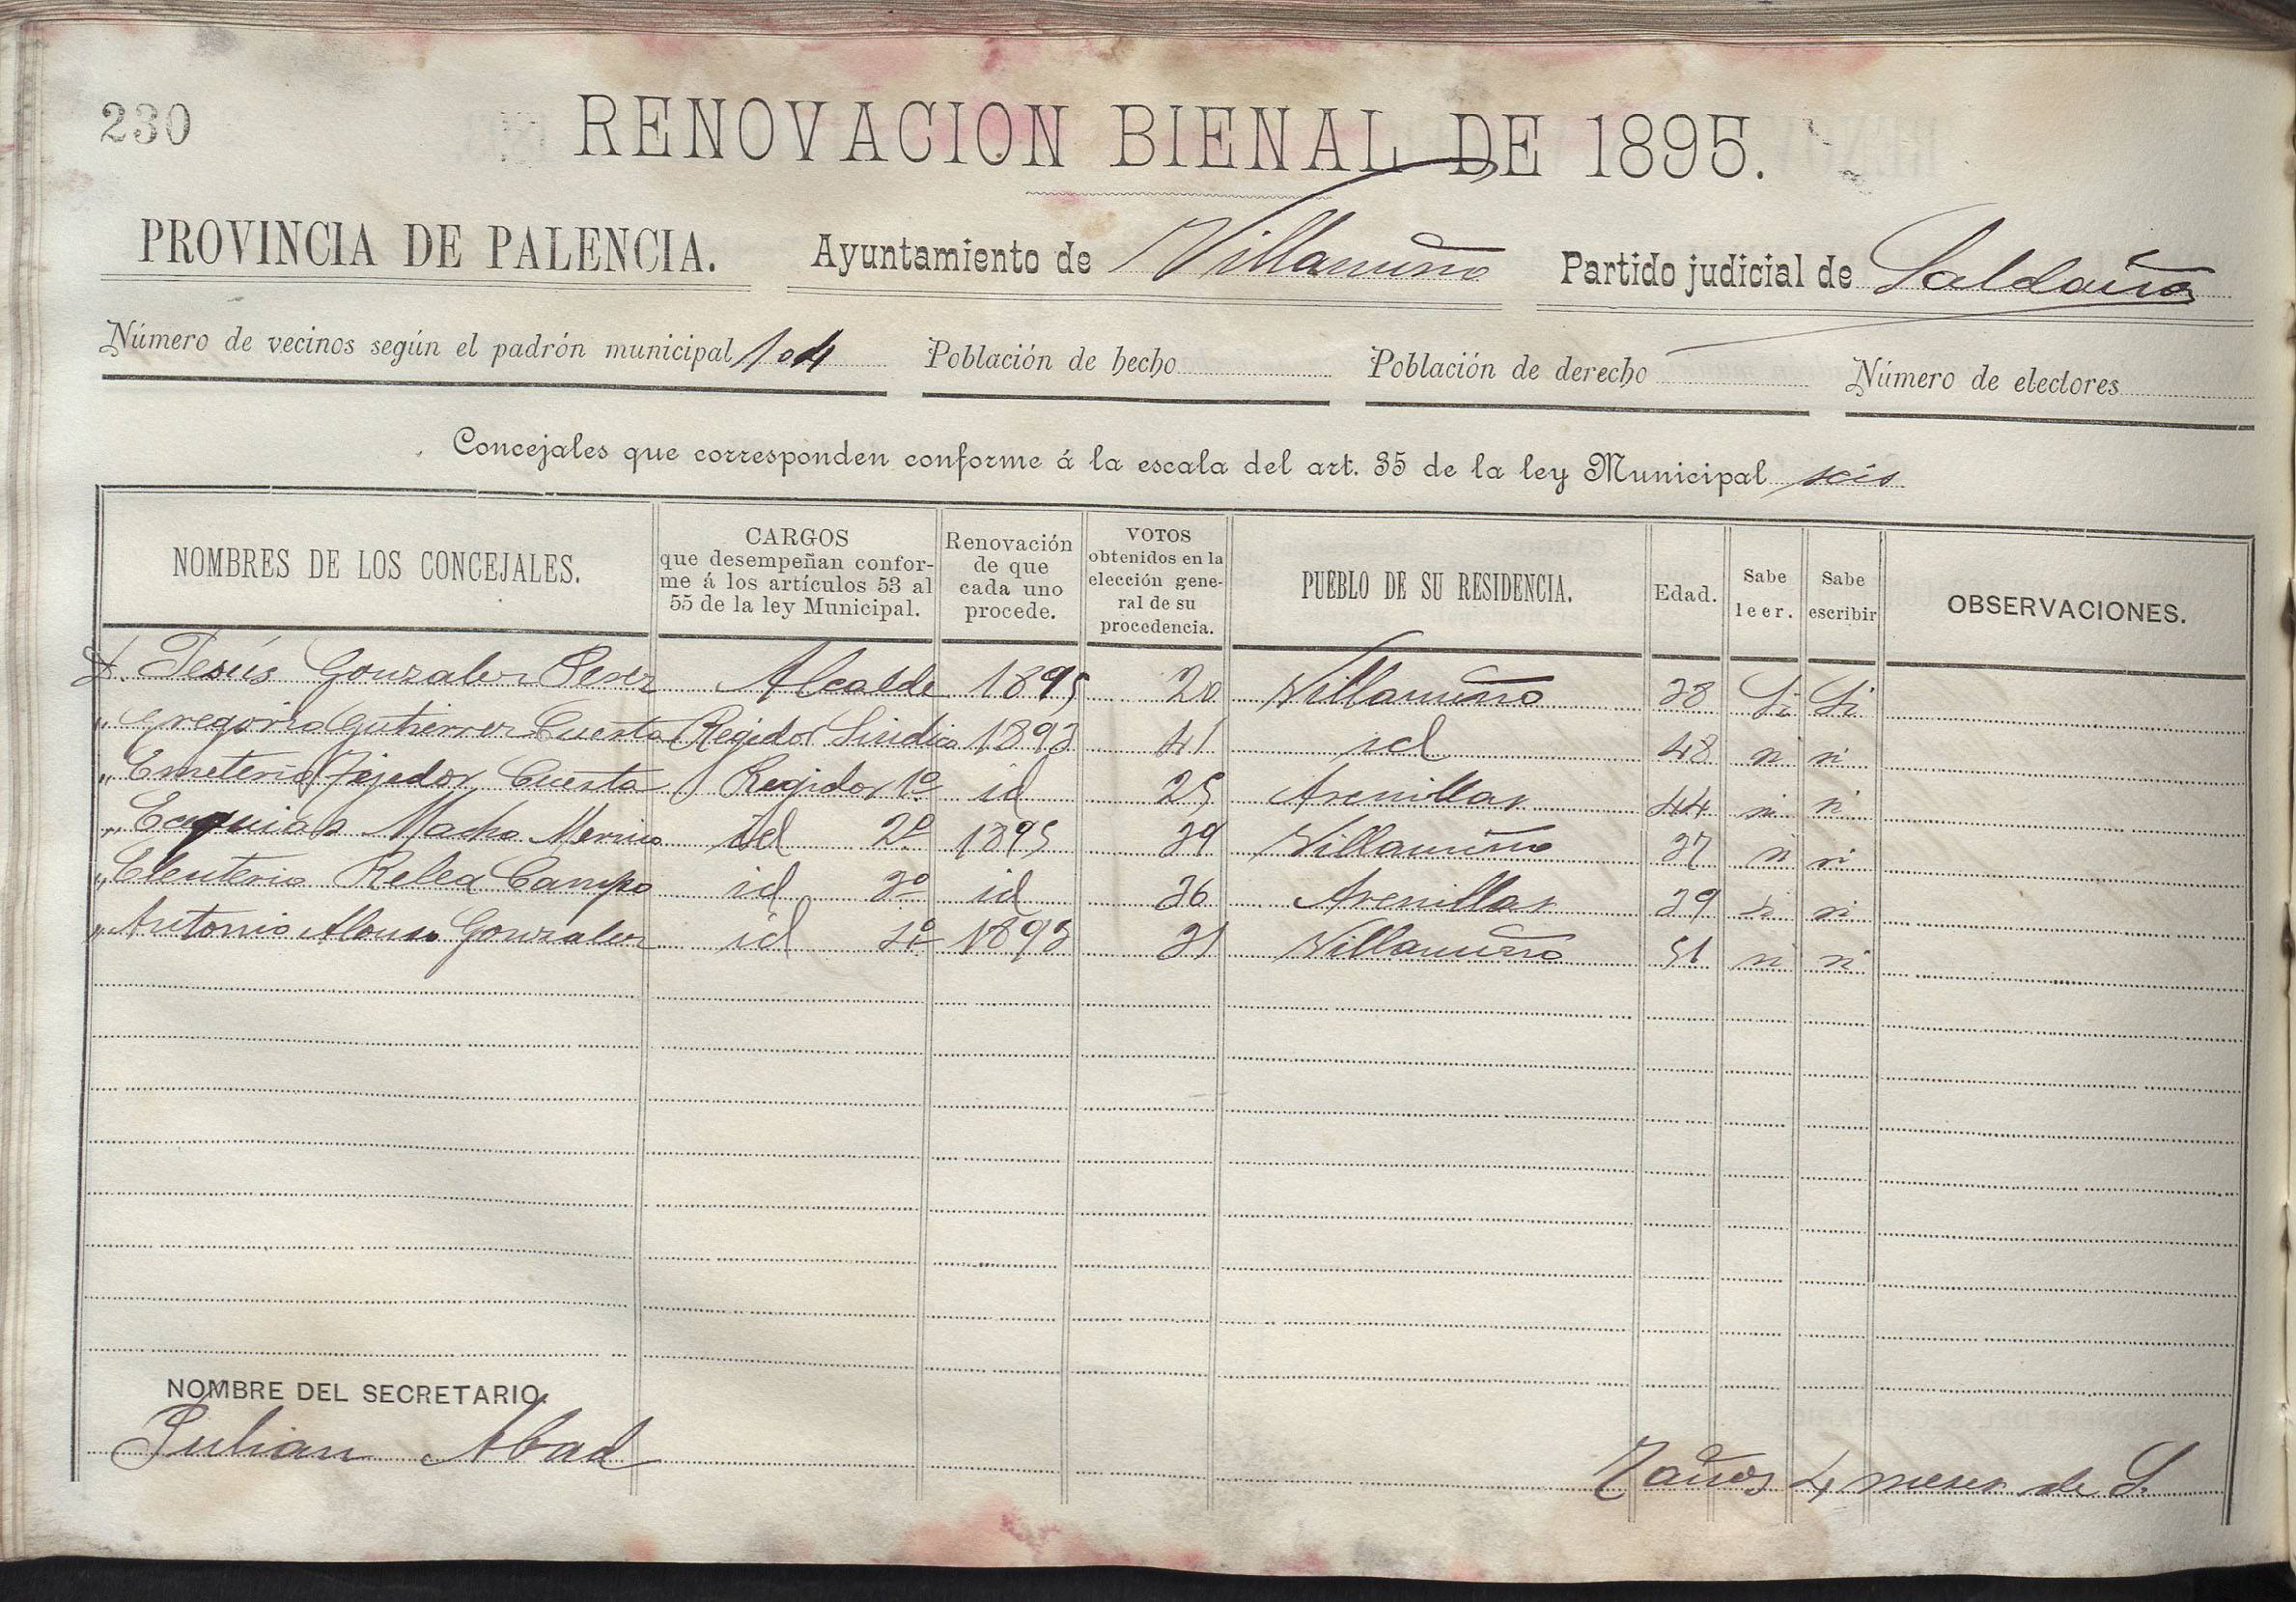 230
RENOVACION BIENAL DE 1895.
PROVINCIA DE PALENCIA. Ayuntamiento de Villanuño Partido judicial de Saldaña
Número de vecinos según el padrón municipal 104 Población de hecho Población de derecho Número de electores
Concejales que corresponden conforme á la escala del art. 35 de la ley Municipal seis
NOMBRES DE LOS CONCEJALES. CARGOS que desempeñan conforme á los artículos 53 al 55 de la ley Municipal. Renovación de que cada uno procede. VOTOS obtenidos en la elección general de su procedencia. PUEBLO DE SU RESIDENCIA. Edad. Sabe leer. Sabe escribir OBSERVACIONES.
D. Jesús Gonzalez Perez Alcalde 1895 20 Villanuño 38 Si Si
" Gregorio Gutierrez Cuesta Regidor Sindico 1893 41 id 48 si si
" Emeterio Tejedor Cuesta Regidor 1º id 25 Arenillas 44 si si
" Ezequias Macho Merino id 2º 1895 39 Villanuño 37 si si
" Eleuterio Relea Campo id 3º id 36 Arenillas 39 si si
" Antonio Alonso Gonzalez id 4º 1893 31 Villanuño 51 si si
NOMBRE DEL SECRETARIO.
Julian Abad 7 años 4 meses de S.